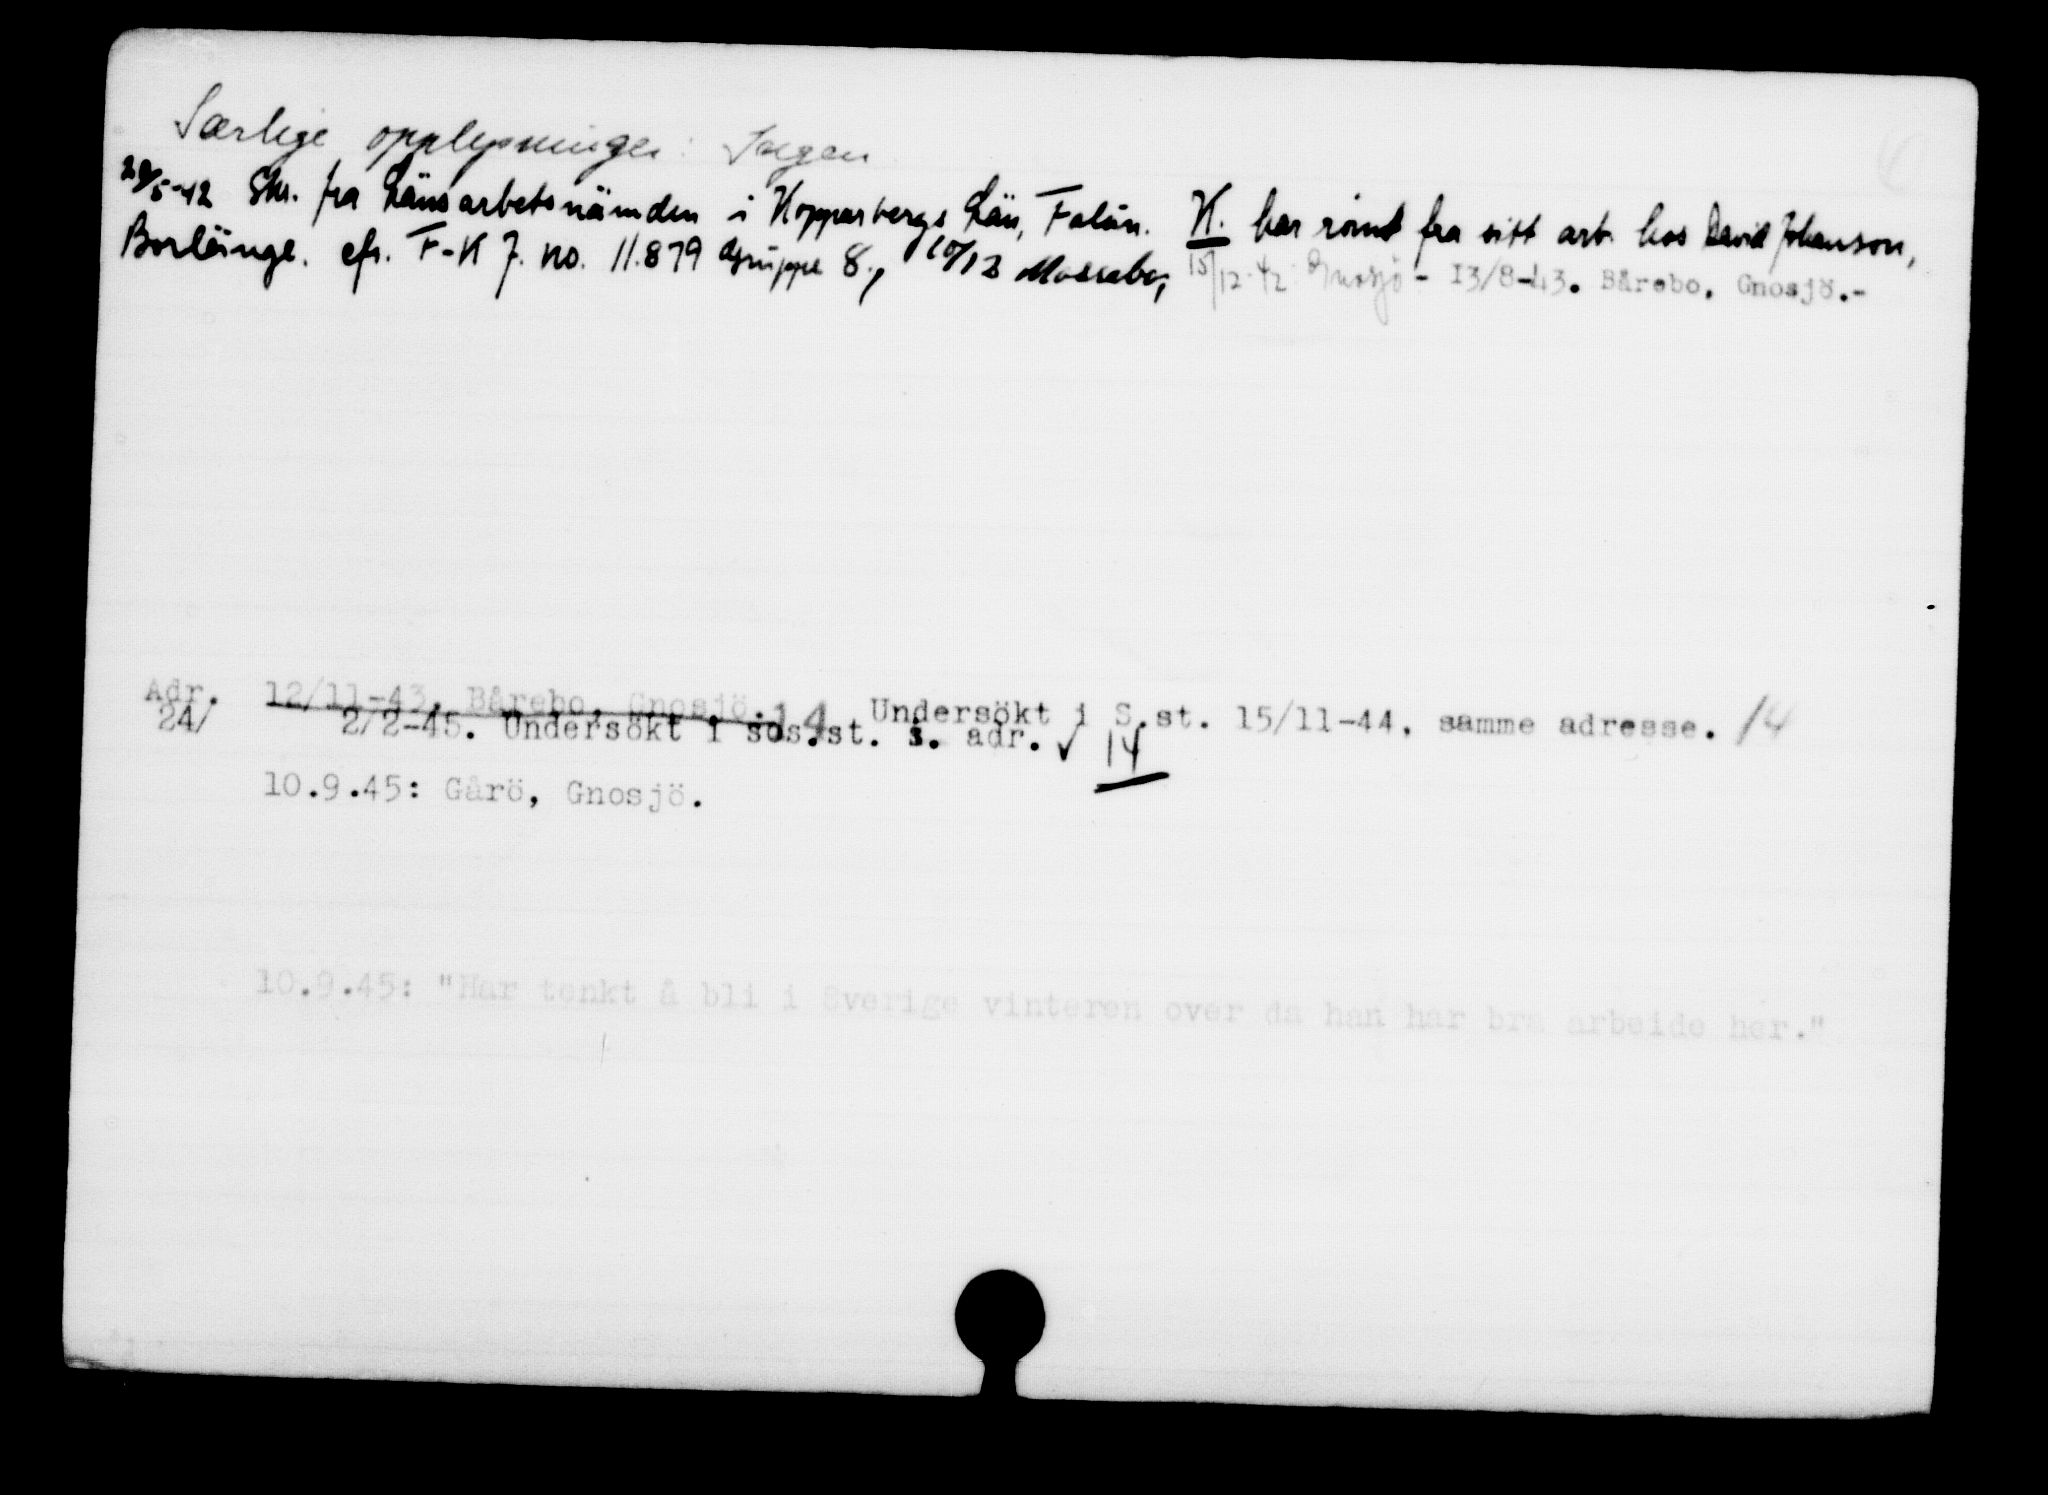 Særlige opplysninger: Ingen
28/5-42 Skr. fra Länsarbetsnämden i Kopparbergs Län, Falun. H. har römt fra sitt arb. hos David Johanson,
Borlänge. cfr. F-K J. no. 11.879 Gruppe 8., 10/12 Mossebo, 15/12-42 Gnosjö - 13/8-43. Bårebo. Gnosjö.-
Adr. 12/11-43. Bårebo, Gnosjö. 14 Undersökt i S.st. 15/11-44. samme adresse. 14
24/ 2/2-45. Undersökt i sos.st. s. adr. ✓ 14
10.9.45: Gårö, Gnosjö.
10.9.45: "Har tenkt å bli i Sverige vinteren over da han har bra arbeide her."